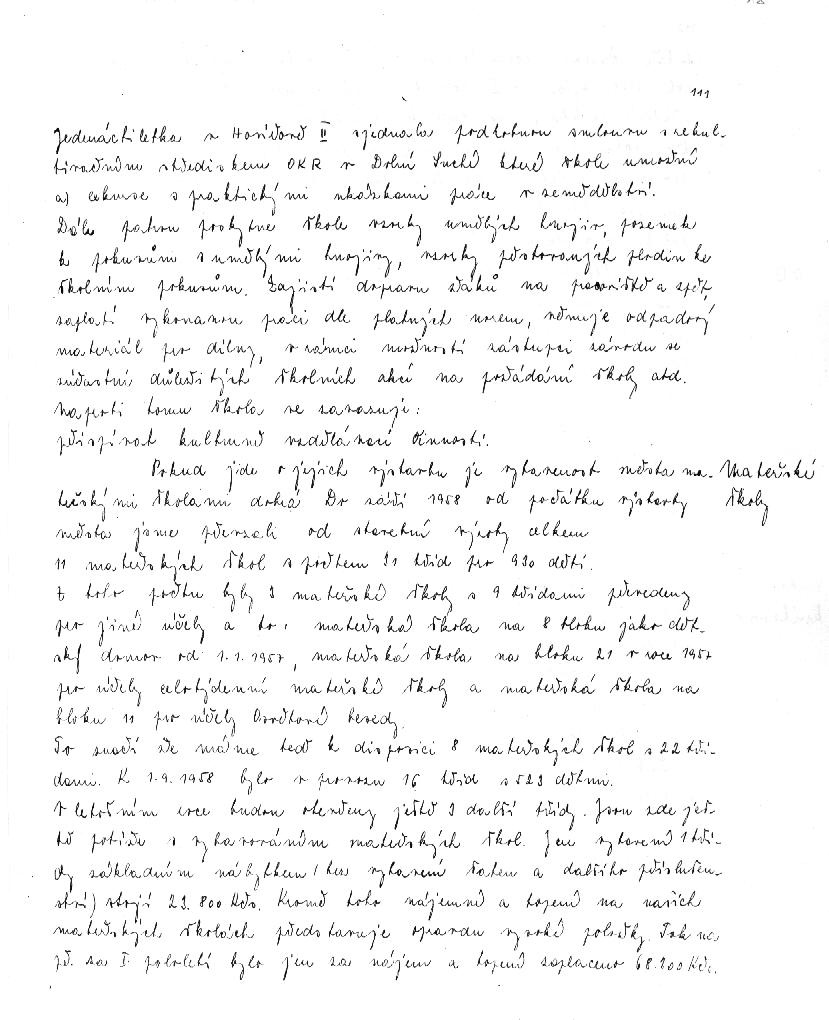 111
Jedenáctiletka v Havířově II sjednala podrobnou smlouvu s rekul-
tivačním střediskem OKR v Dolní Suché které škole umožní
a) exkurse s praktickými ukázkami práce v zemědělství.
Dále patron poskytne škole vzorky umělých hnojiv, pozemek
k pokusům s umělými hnojivy, vzorky pěstovaných plodin ke
školním pokusům. Zajistí dopravu žáků na pracoviště a zpět,
zaplatí vykonanou práci dle platných norem, věnuje odpadový
materiál pro dílny, v rámci možností zástupci závodu se
súčastní důležitých školních akcí na požádání školy atd.
Naproti tomu škola se zavazuje:
přispívat kulturně vzdělávací činností.
Pokud jde o jejich výstavbu je vybavenost města ma-
teřskými školami dobrá Do září 1958 od počátku výstavby
Mateřské
školy
města jsme převzali od stavební výroby celkem
11 mateřských škol s počtem 31 tříd pro 930 dětí.
Z toho počtu byly 3 mateřské školy s 9 třídami převedeny
pro jiné účely a to: mateřská škola na 8 bloku jako dět-
ský domov od 1.1.1957, mateřská škola na bloku 21 v roce 1957
pro účely celotýdenní mateřské školy a mateřská škola na
bloku 11 pro účely Osvětové besedy.
To značí že máme teď k disposici 8 mateřských škol s 22 tří-
dami. K 1.9.1958 bylo v provozu 16 tříd s 523 dětmi.
V letošním roce budou otevřeny ještě 3 další třídy. Jsou zde jeř-
tě potíže s vybavováním mateřských škol. Jen vybavení 1 tří-
dy základním nábytkem (bez vybavení šaten a dalšího příslušen-
ství) stojí 23.800 Kčs. Kromě toho nájemné a topení na našich
mateřských školách představuje opravdu vysoké položky. Tak na
př. za I. pololetí bylo jen za nájem a topení zaplaceno 68.200 Kčs.